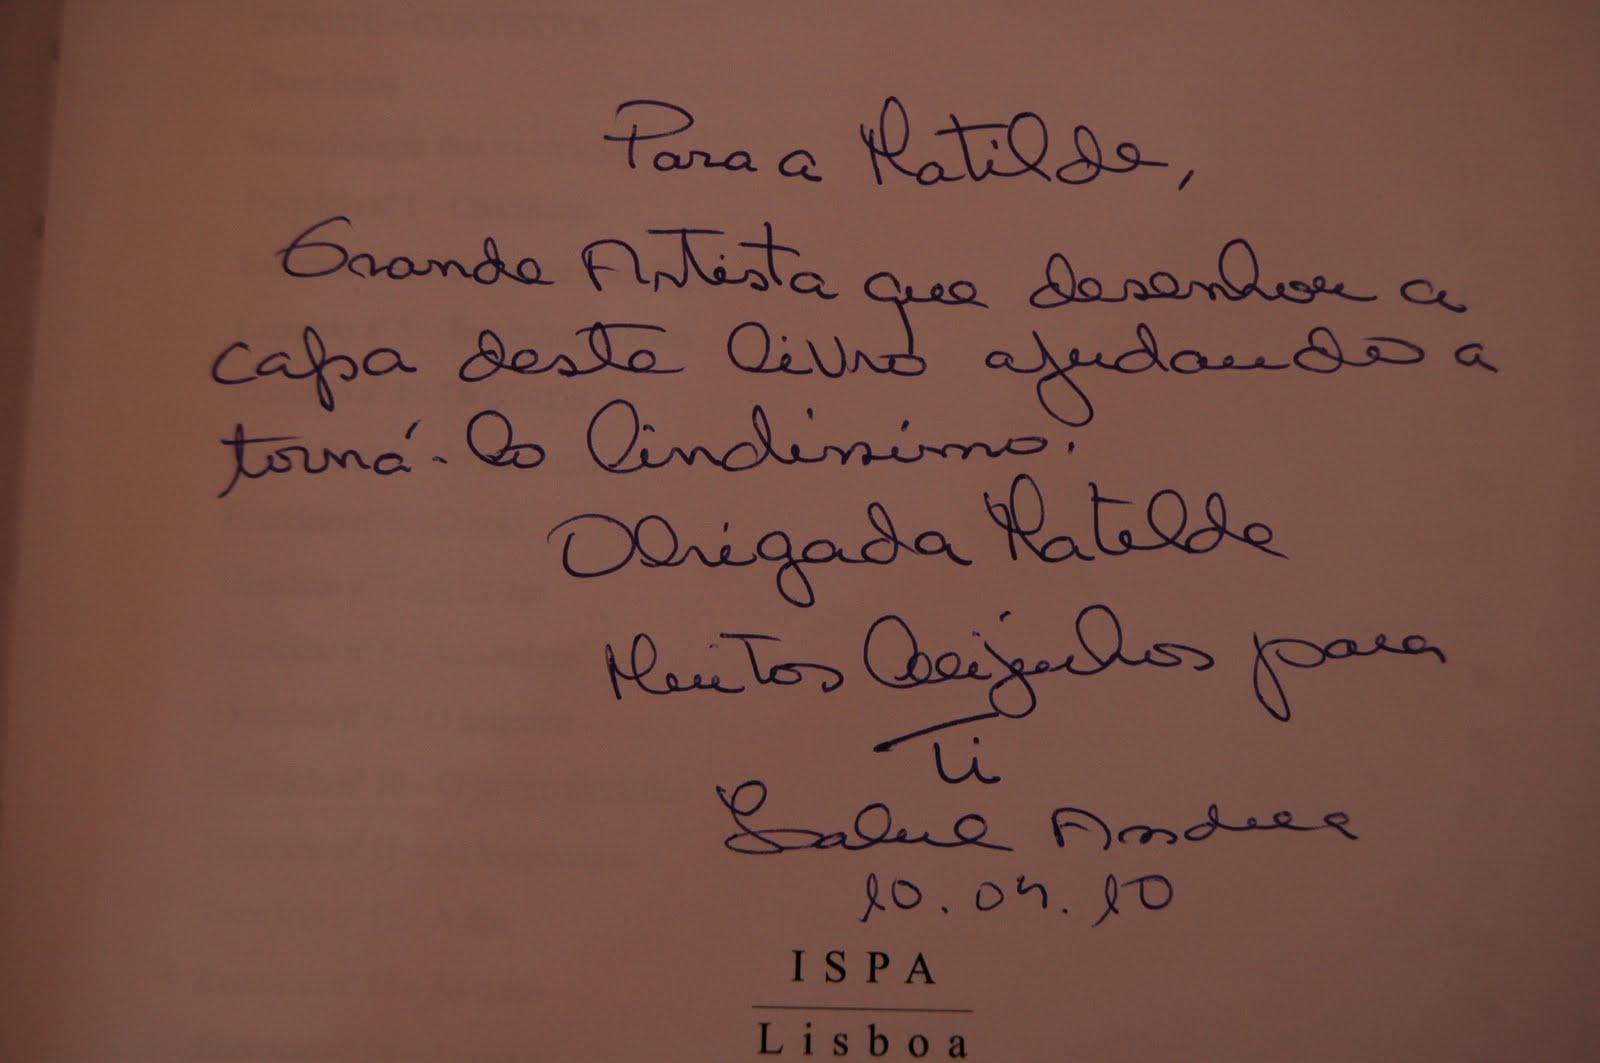 Para a Matilde,
Grande Artista que desenhou a
capa deste livro ajudando a
torná-lo lindíssimo.
Obrigada Matilde
Muitos beijinhos para
Ti
10.04.10
ISPA
Lisboa